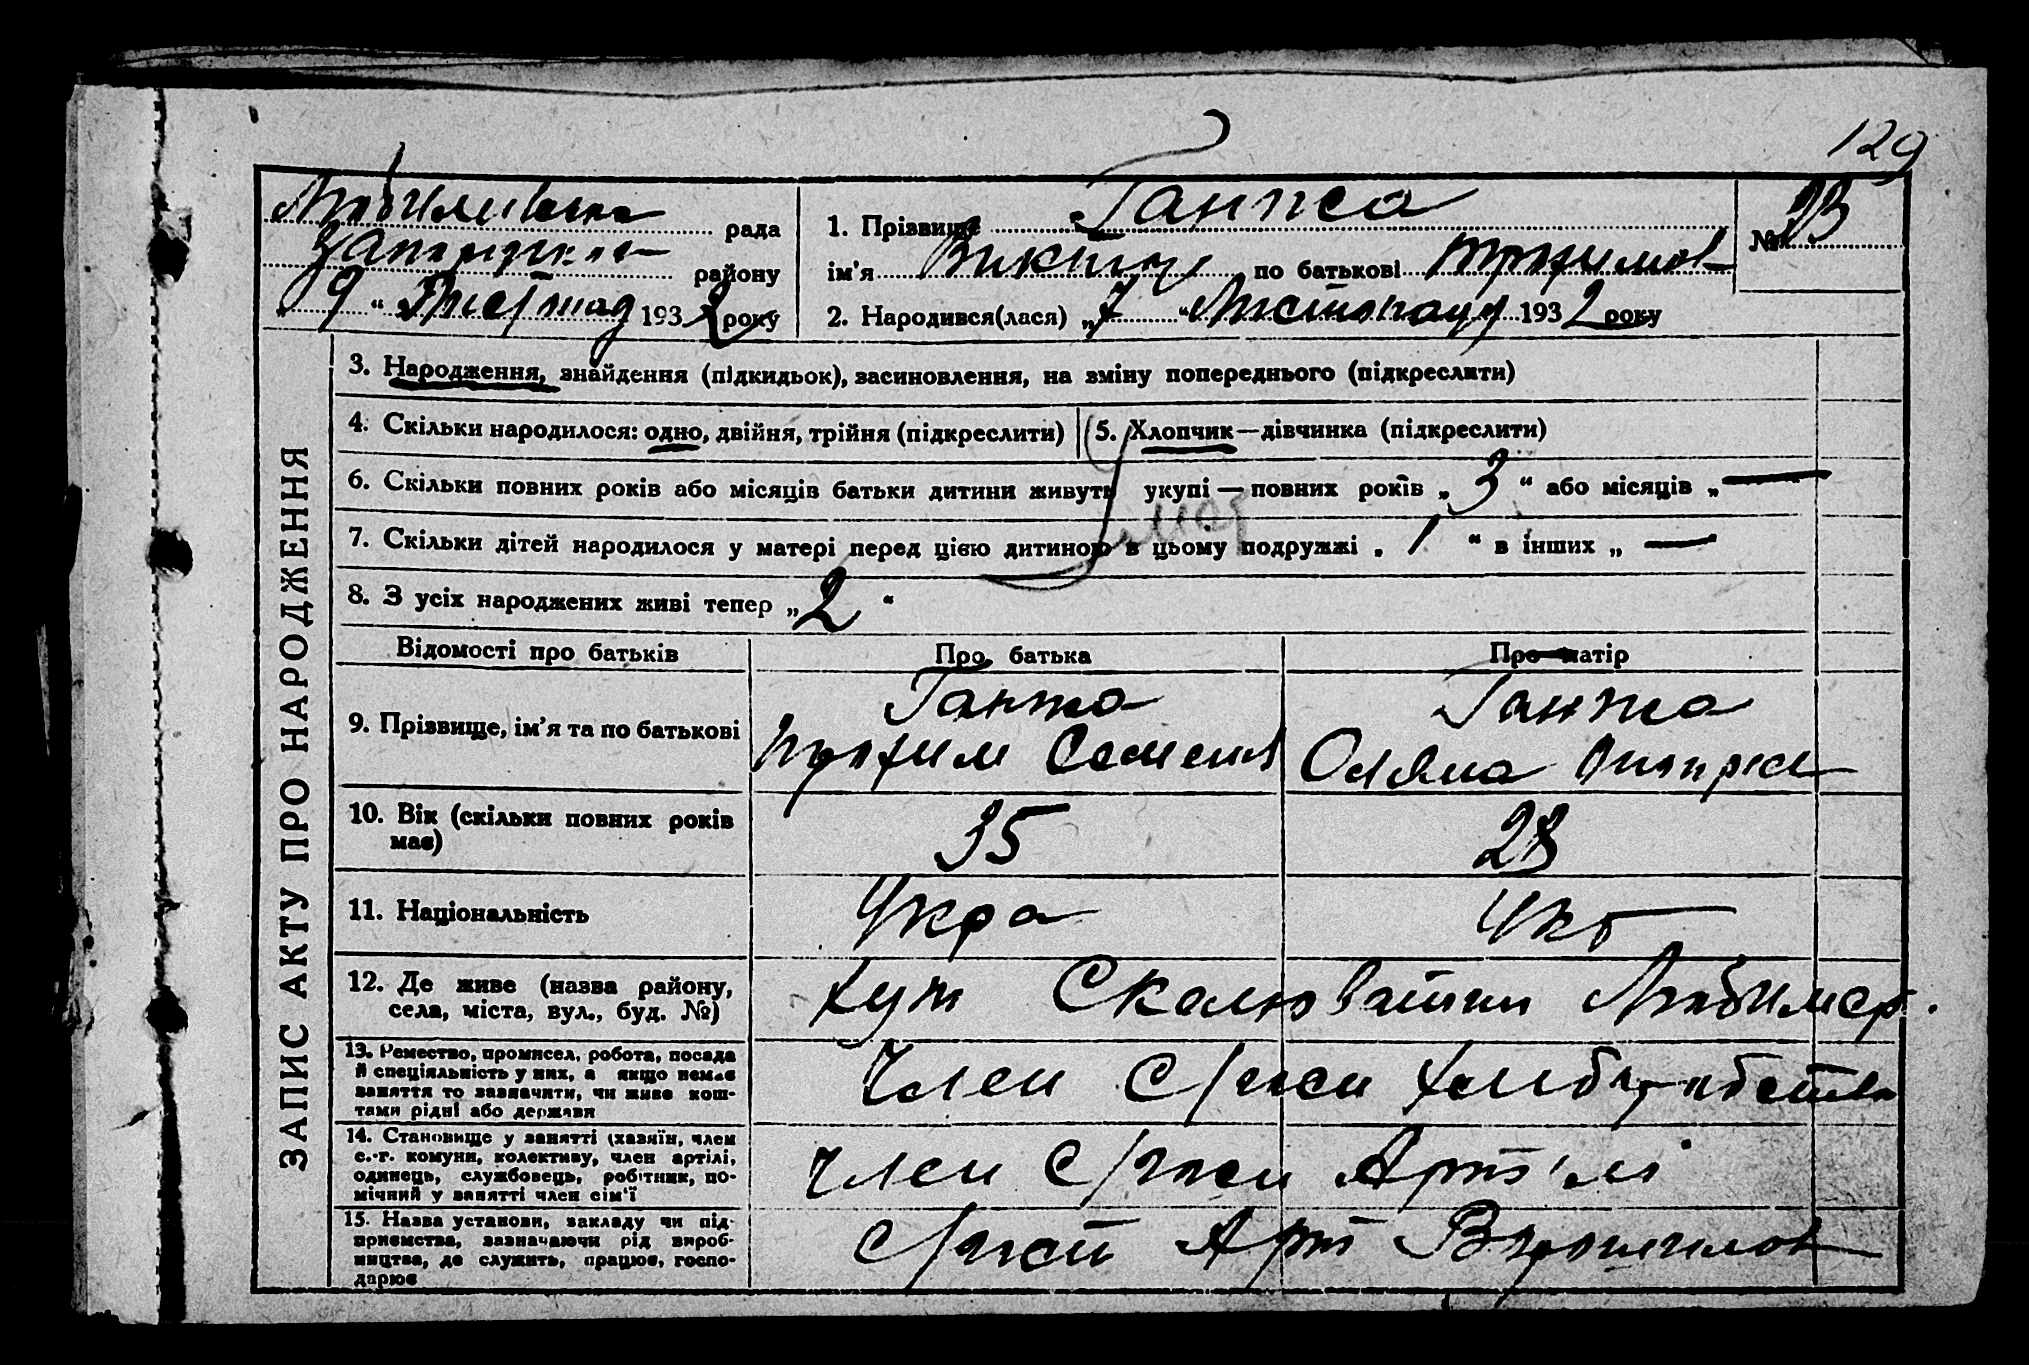 129
Любимівська рада
району
„9“ Листопад 1932 року
1. Прізвище Ганжа
ім'я Виктор по батькові Трохимов
№ 23
2. Народився(лася) „7“ Листопаду 1932 року
ЗАПИС АКТУ ПРО НАРОДЖЕННЯ
3. Народження, знайдення (підкидьок), засиновлення, на зміну попереднього (підкреслити)
4. Скільки народилося: одно, двійня, трійня (підкреслити)
5. Хлопчик—дівчинка (підкреслити)
6. Скільки повних років або місяців батьки дитини живуть укупі — повних років „3“ або місяців „—
7. Скільки дітей народилося у матері перед цією дитиною в цьому подружжі „1“ в інших „—“
8. З усіх народжених живі тепер „2“
Відомості про батьків
Про батька
Про матір
9. Прізвище, ім'я та по батькові
Ганжа
Трохим Семенов
Ганжа
Оляна
10. Вік (скільки повних років
має)
35
28
11. Національність
Укра
Укр
12. Де живе (назва району,
села, міста, вул., буд. №)
хут Скелюватий Любимєр.
13. Ремество, промисел, робота, посада
й спеціяльність у них, а якщо немає
заняття то зазначити, чи живе кош-
тами рідні або держави
Член С/госп хлиборобства
14. Становище у занятті (хазяїн, член
с.-г. комуни, колективу, член артілі,
одинець, службовець, робітник, по-
мічний у занятті член сім'ї
Член С/госп Артілі
15. Назва установи, закладу чи під-
приємства, зазначаючи рід вироб-
ництва, де служить, працює, госпо-
дарює
С/госп Арт Ворошилов